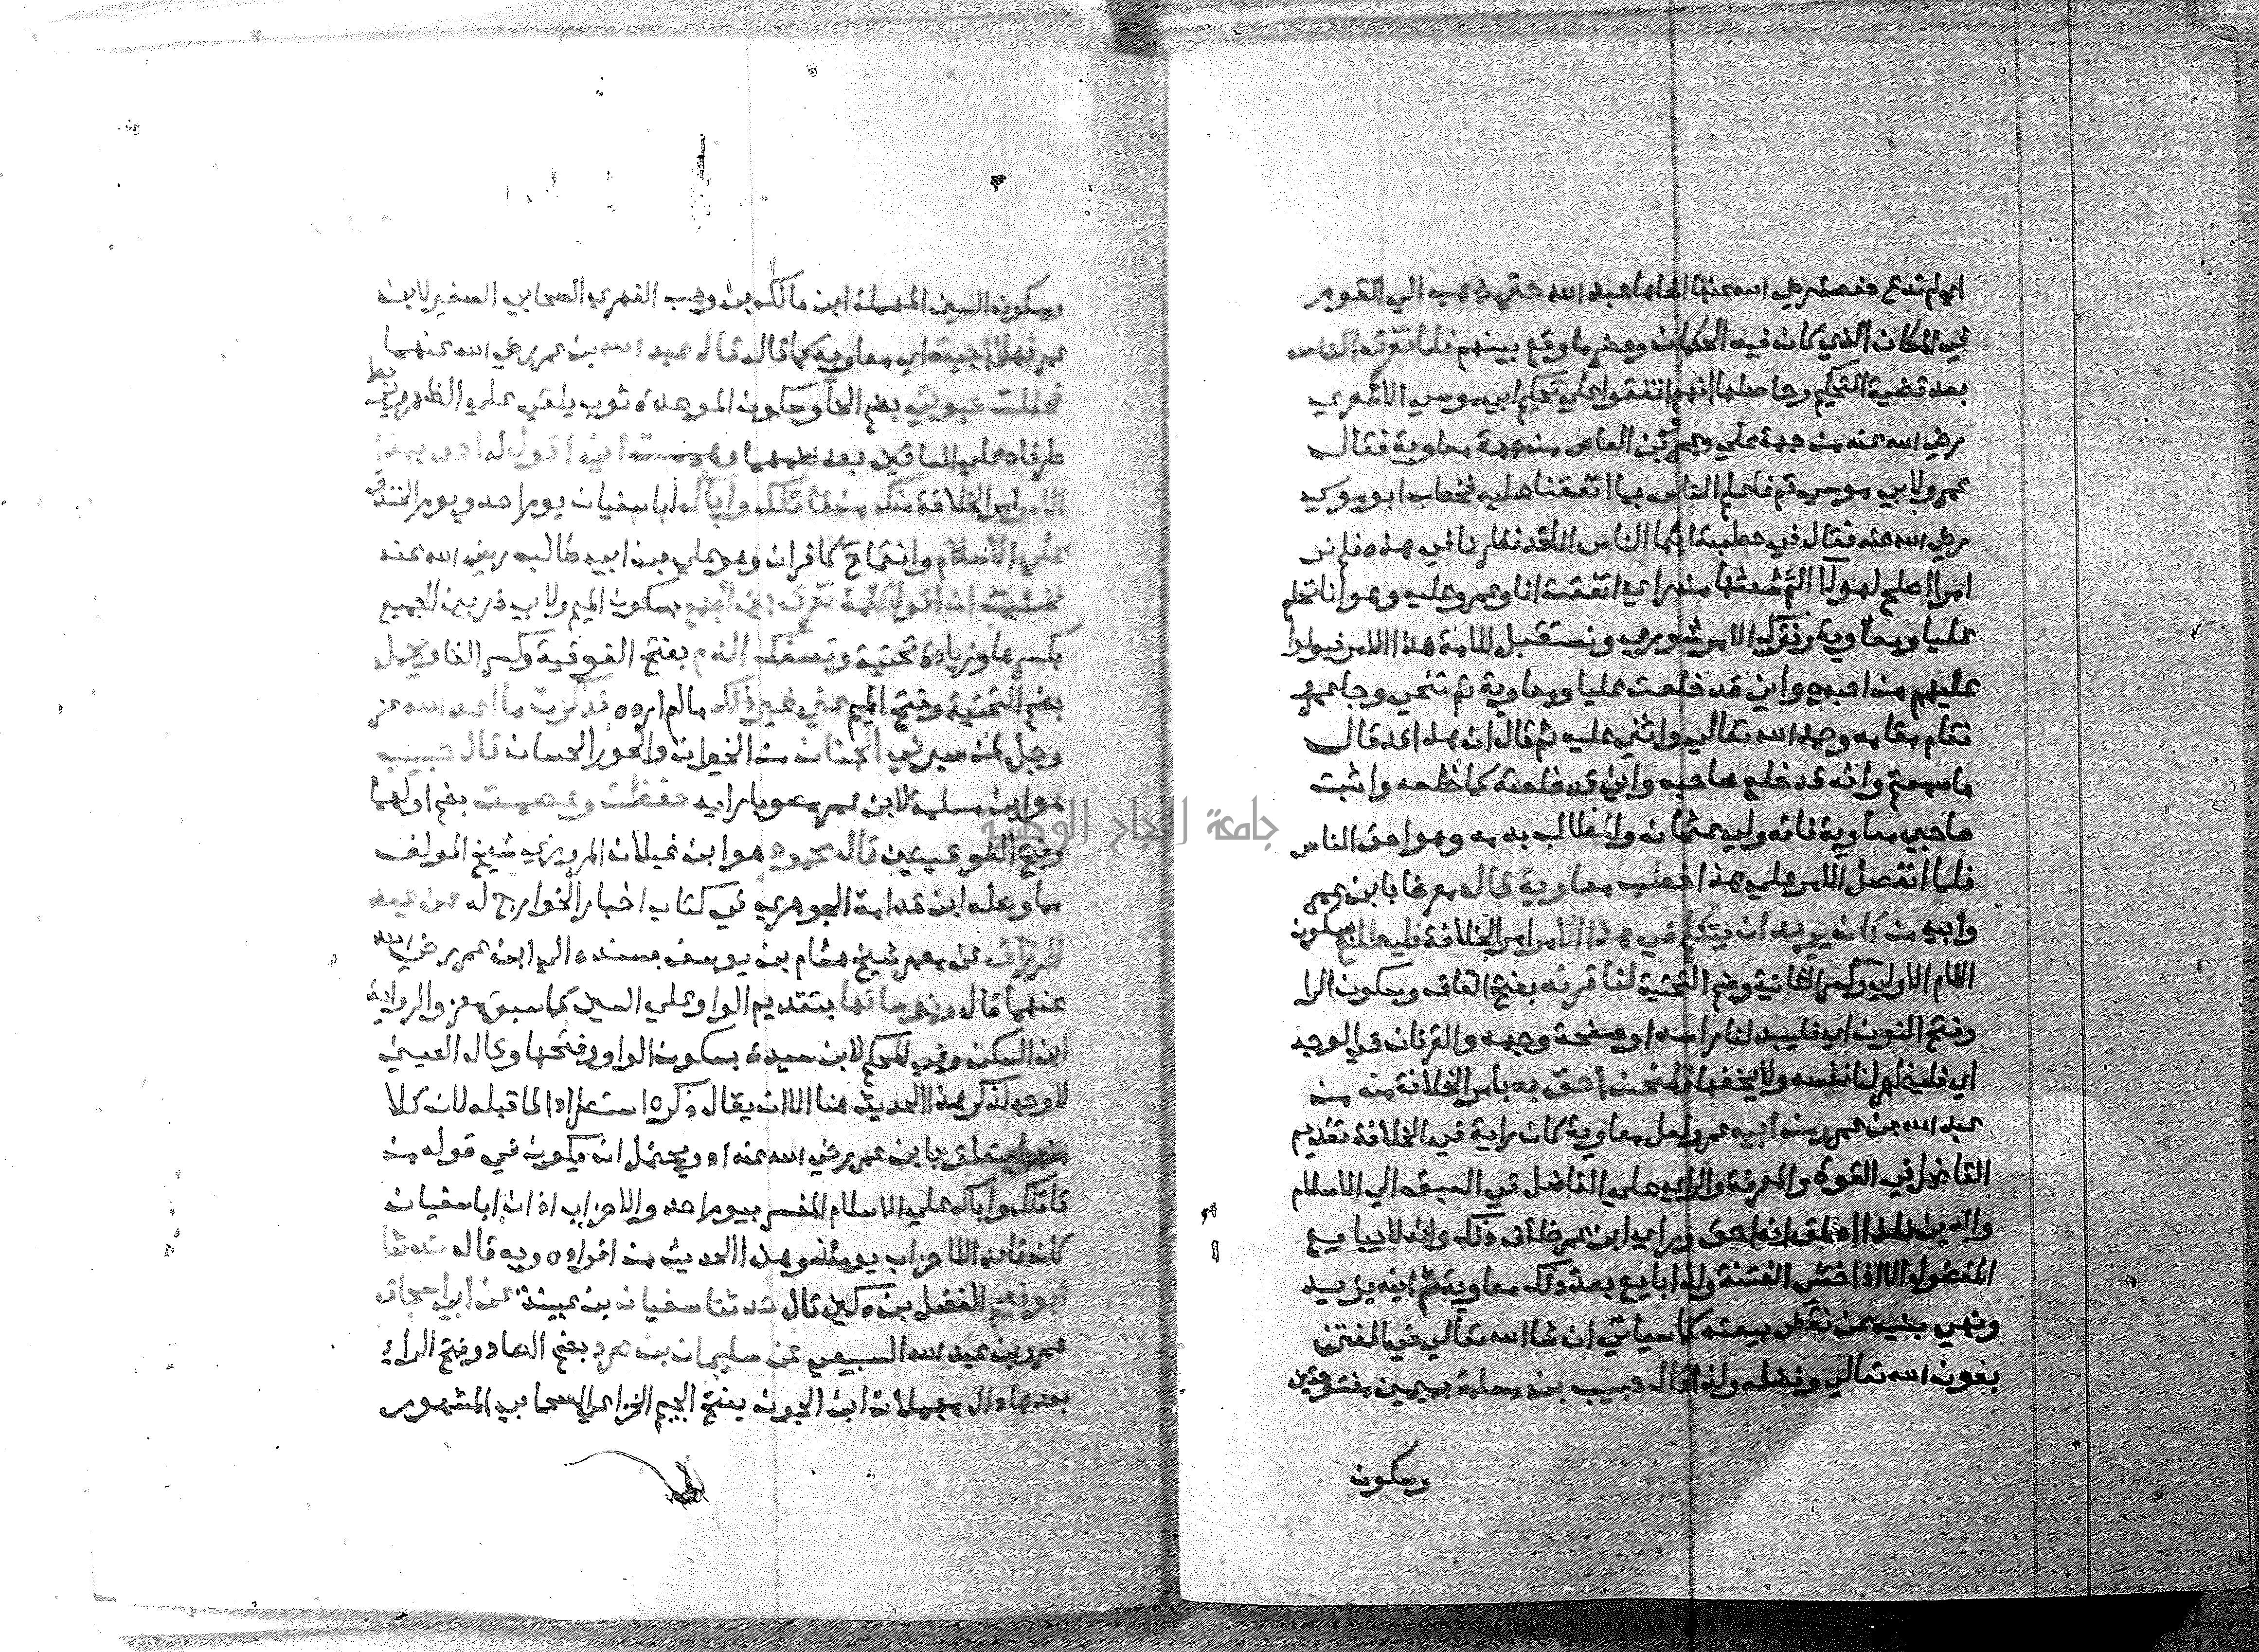 اي لم تدع حفصة رضي الله عنها اخاها عبد الله حتي ذهب الي القوم
في المكان الذي كان فيه الحكمان وحضر ما وقع بينهم فلما تفرق الناس
بعد قضية التحكيم وحاصلها انهم اتفقوا علي تحكيم ابي موسي الاشعري
رضي الله عنه من جهة علي وعمرو بن العاص من جهة معاوية فقال
عمرو لابي موسي قم فاعلم الناس بما اتفقنا عليه فخطب ابو موسي
رضي الله عنه فقال في خطبته ايها الناس انا قد نظرنا في هذه فلم نر
امرا اصلح لها ولا الم لشعثها من راي اتفقت انا وعمرو عليه وهو انا نخلع
عليا ومعاوية ونترك الامر شوري ونستقبل للامة هذا الامر فيولوا
عليهم من احبوه واني قد خلعت عليا ومعاوية ثم تنحي وجا عمرو
فقام مقامه وحمد الله تعالي واثني عليه ثم قال ان هذا قد قال
ما سمعتم وانه قد خلع صاحبه واني قد خلعته كما خلعه واثبت
صاحبي معاوية فانه ولي عثمان والمطالب بدمه وهو احق الناس
فلما انفصل الامر علي هذا خطب معاوية قال معرضا بابن عمر
وابيه من كان يريد ان يتكلم في هذا الامر امر الخلافة فليطلع بسكون
اللام الاولي وكسر الثانية وضم التحتية لنا قرنه بفتح القاف وسكون الرا
وفتح النون اي فليبد لنا راسه او صفحة وجهه والقرنان في الوجه
اي فليظهر لنا نفسه ولا يخفها فلنحن احق به بامر الخلافة منه من
عبد الله بن عمر ومن ابيه عمر ولعل معاوية كان رايه في الخلافة تقديم
الفاضل في القوة والمعرفة والراي علي الفاضل في السبق الي الاسلام
والدين فلذا اطلق انه احق وراي ابن عمر خلاف ذلك وانه لا يبايع
المفضول الا اذا خشي الفتنة ولذا بايع بعد ذلك معاوية ثم ابنه يزيد
ونهي بنيه عن نقض بيعته كما سياتي ان شا الله تعالي في الفتن
بعون الله تعالي وفضله ولذا قال حبيب بن مسلمة بميمين مفتوحتين
وسكون
وسكون السين المهملة ابن مالك بن وهب الفهري الصحابي الصغير لابن
عمر فهلا اجبته اي معاوية كما قال قال عبد الله بن عمر رضي الله عنهما
فحللت حبوتي بضم الحا وسكون الموحدة ثوب يلقي علي الظهر يربط
طرفاه علي الساقين بعد ضمهما وهممت ان اقول له احق بهذا
الامر امر الخلافة منك من قاتلك واباك ابا سفيان يوم احد ويوم الخندق
علي الاسلام وانتما ح كافران وهو علي بن ابي طالب رضي الله عنه
فخشيت ان اقول كلمة تفرق بين الجمع بسكون الميم ولابي ذر بين الجميع
بكسرها وزيادة تحتية وتسفك الدم بفتح الفوقية وكسر الفا ويحمل
بضم التحتية وفتح الميم عني غير ذلك ما لم ارده فذكرت ما اعد الله عز
وجل لمن صبر في الجنان من الخيرات والحور الحسان قال حبيب
هو ابن مسلمة لابن عمر مصوبا رايه حفظت وعصمت بضم اولهما
وفتح الفوقيتين قال محمود هو ابن غيلان المروزي شيخ المولف
مما وصله ابن قدامة الجوهري في كتاب اخبار الخوارج له عن عبد
الرزاق عن معمر شيخ هشام بن يوسف بسنده الي ابن عمر رضي الله
عنهما قال ونوساتها بتقديم الواو علي السين كما سبق معزوا لرواية
ابن السكن وفي المحكم لابن سيده بسكون الواو وفتحها وقال العيني
لا وجه لذكر هذا الحديث هنا الا ان يقال ذكره استطرادا لما قبله لان كلا
منهما يتعلق بابن عمر رضي الله عنه او يحتمل ان يكون في قوله من
قاتلك واباك علي الاسلام المفسر بيوم احد والاحزاب اذ ان ابا سفيان
كان قائد الاحزاب يومئذ وهذا الحديث من افراده وبه قال حدثنا
ابو نعيم الفضل بن دكين قال حدثنا سفيان بن عيينة عن ابي اسحاق
عمرو بن عبد الله السبيعي عن سليمان بن صرد بضم الصاد وفتح الراء
بعدها دال مهملات ابن الجون بفتح الجيم الخزاعي الصحابي المشهور
جامعة النجاح الوطنية